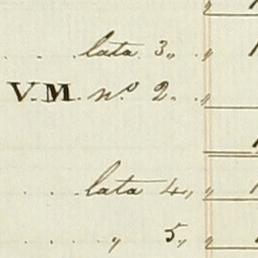 lata 3,, "
V.M. nº 2. "
lata 4,, "
" 5,, "